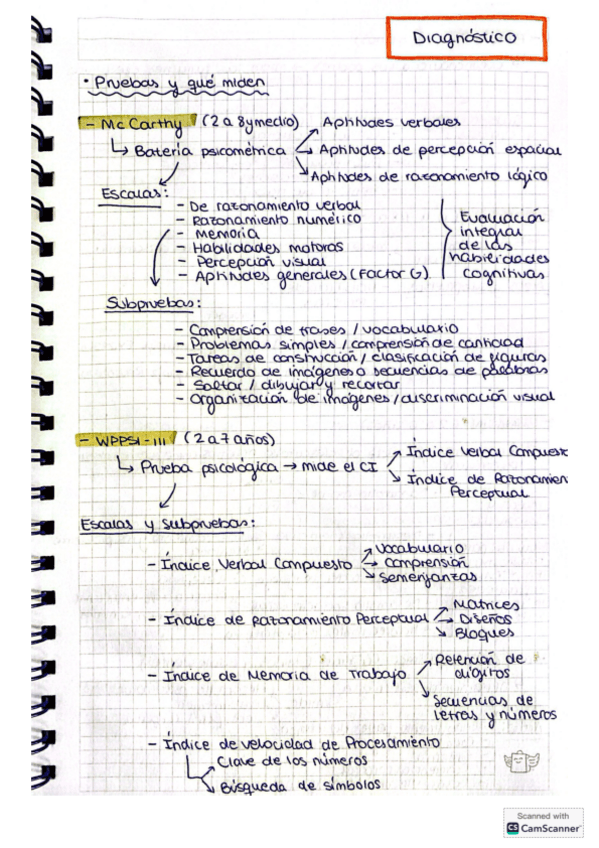 Diagnóstico
· Pruebas y qué miden
- Mc Carthy (2 a 8 y medio)
Aptitudes verbales
↳ Batería psicométrica
Aptitudes de percepción espacial
Aptitudes de razonamiento lógico
Escalas:
- De razonamiento verbal
- Razonamiento numérico
- Memoria
- Habilidades motoras
- Percepción visual
- Aptitudes generales (Factor G)
Evaluación
integral
de las
habilidades
cognitivas
Subpruebas:
- Comprensión de frases / vocabulario
- Problemas simples / comprensión de cantidad
- Tareas de construcción / clasificación de figuras
- Recuerdo de imágenes o secuencias de palabras
- Saltar / dibujar y recortar
- Organización de imágenes / discriminación visual
- WPPSI-III (2 a 7 años)
Índice Verbal Compuest
↳ Prueba psicológica → mide el CI
Índice de Razonamien
Perceptual
Escalas y Subpruebas:
- Índice Verbal Compuesto
Vocabulario
Comprensión
Semenjanzas
- Índice de Razonamiento Perceptual
Matrices
Diseños
Bloques
- Índice de Memoria de Trabajo
Retención de
dígitos
Secuencias de
letras y números
- Índice de velocidad de Procesamiento
Clave de los números
Búsqueda de símbolos
Scanned with
CS CamScanner